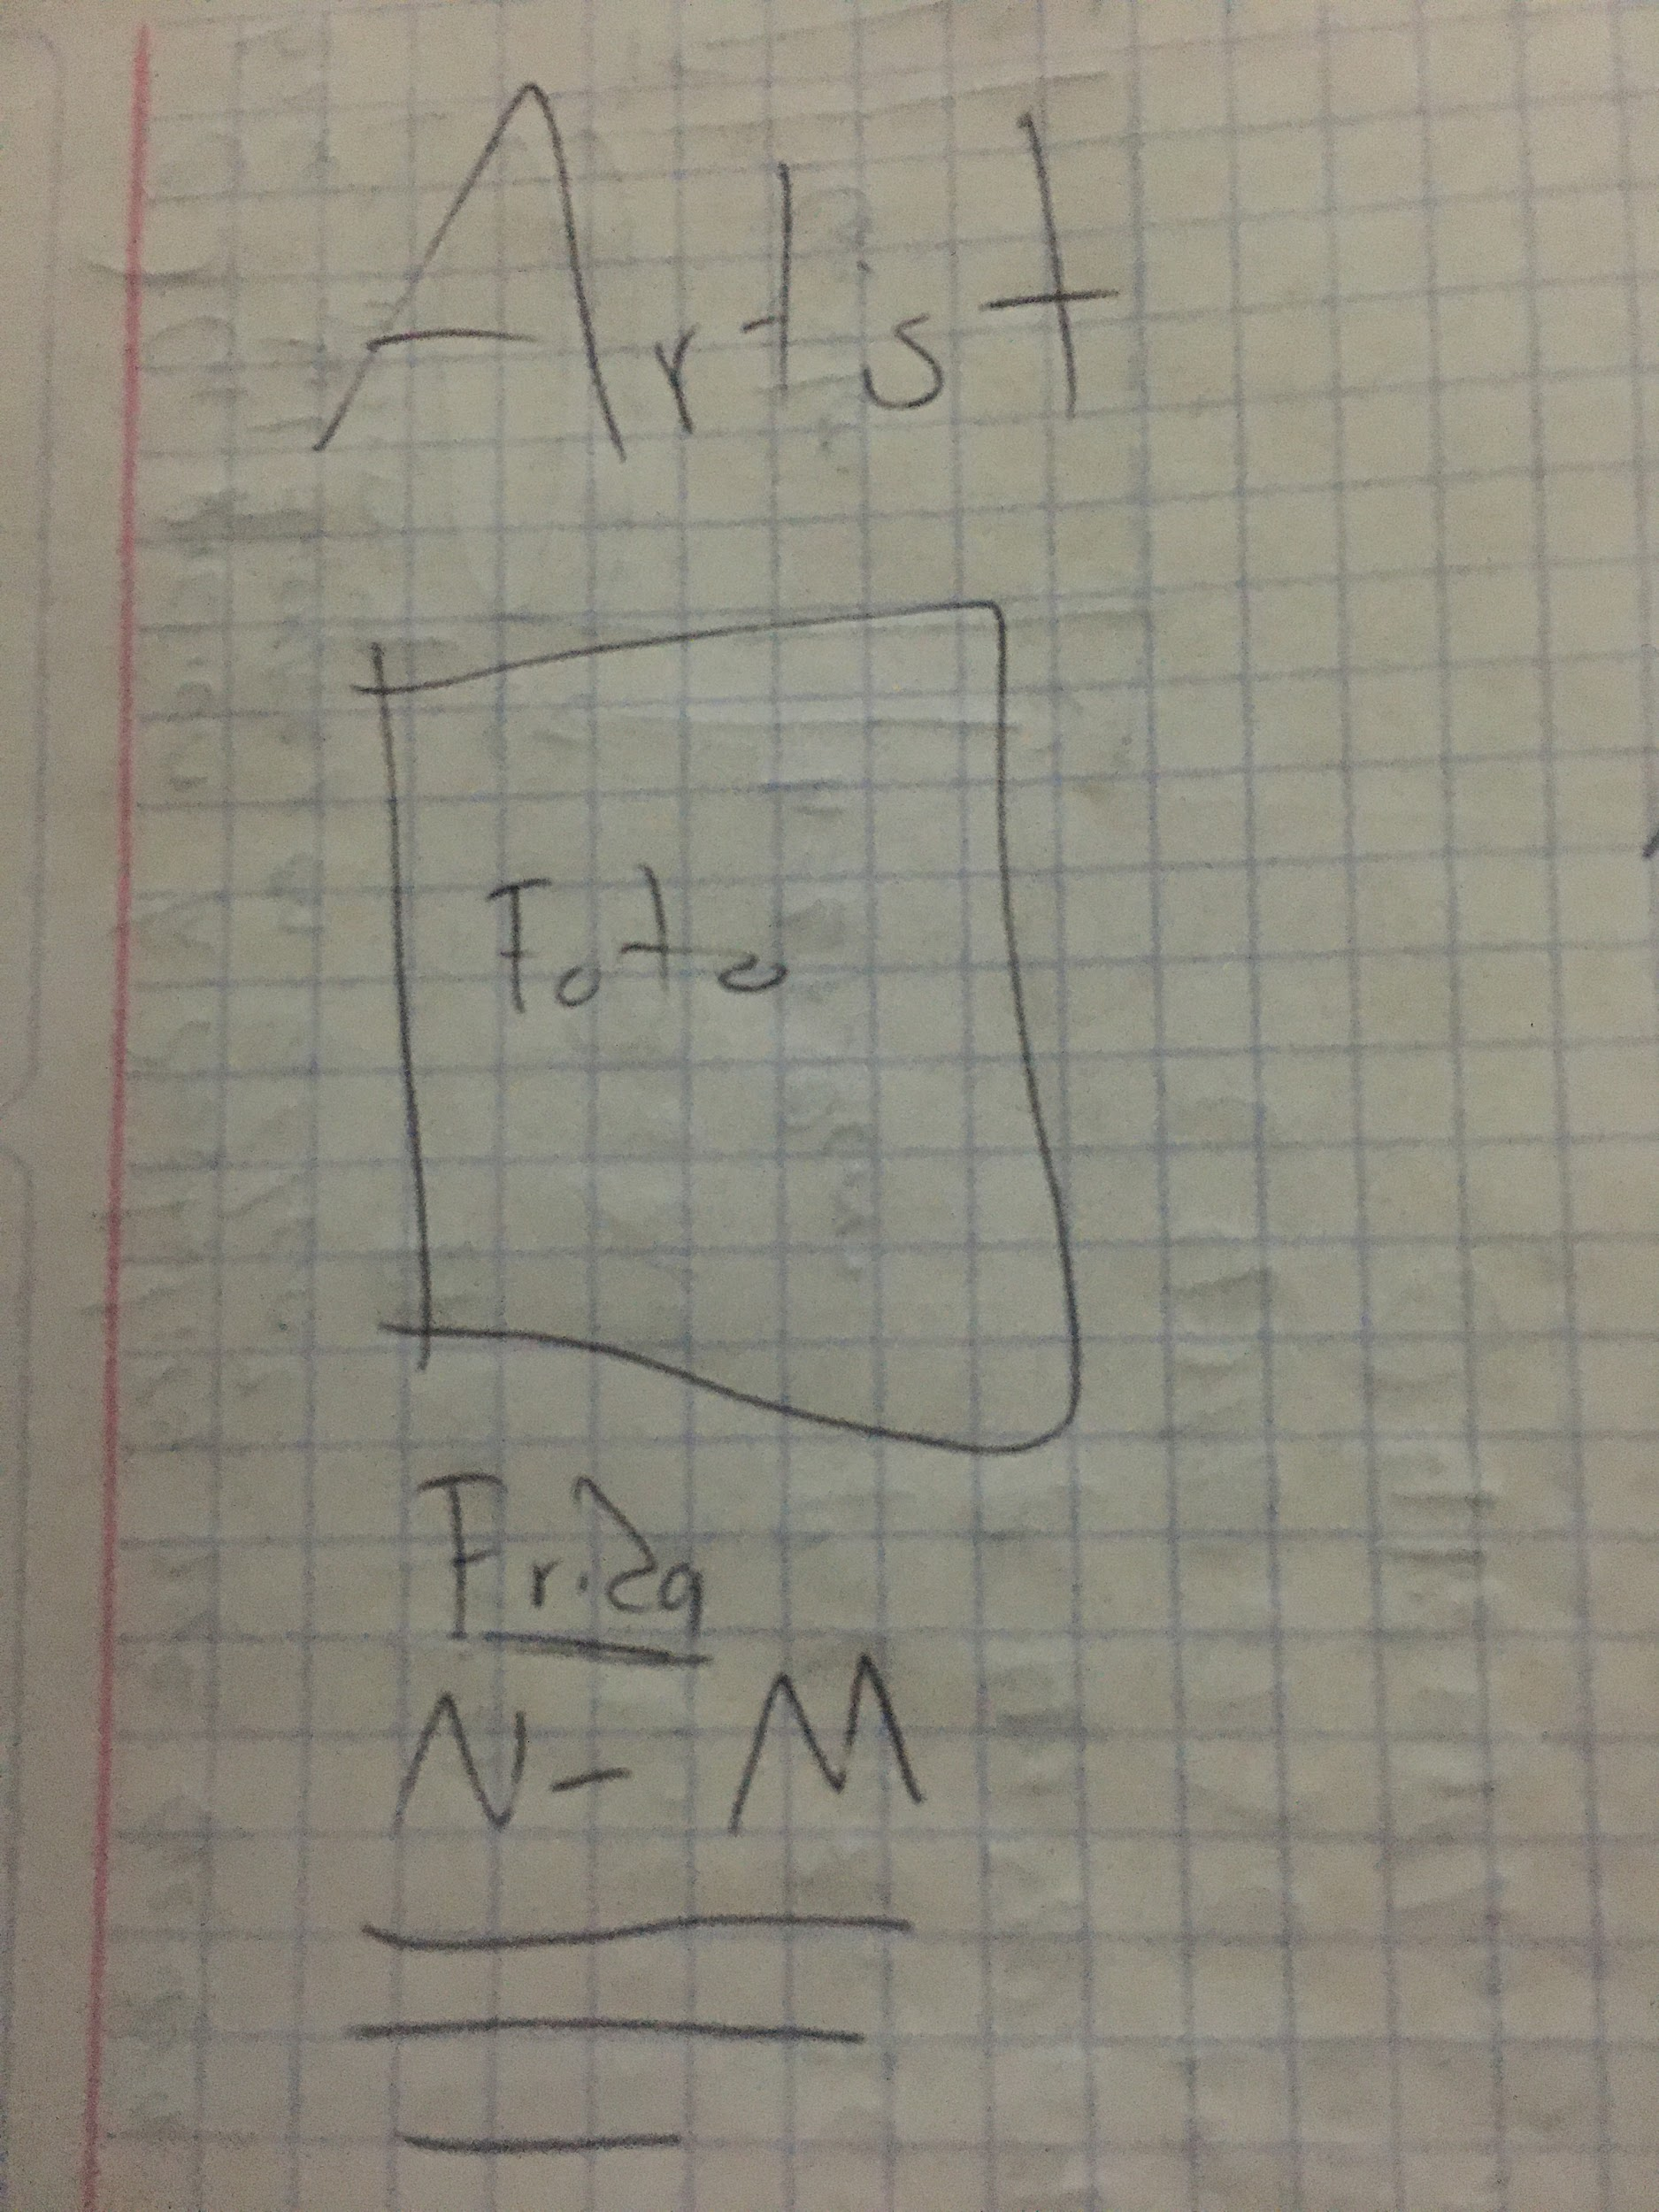 Artist
Foto
Frida
N - M